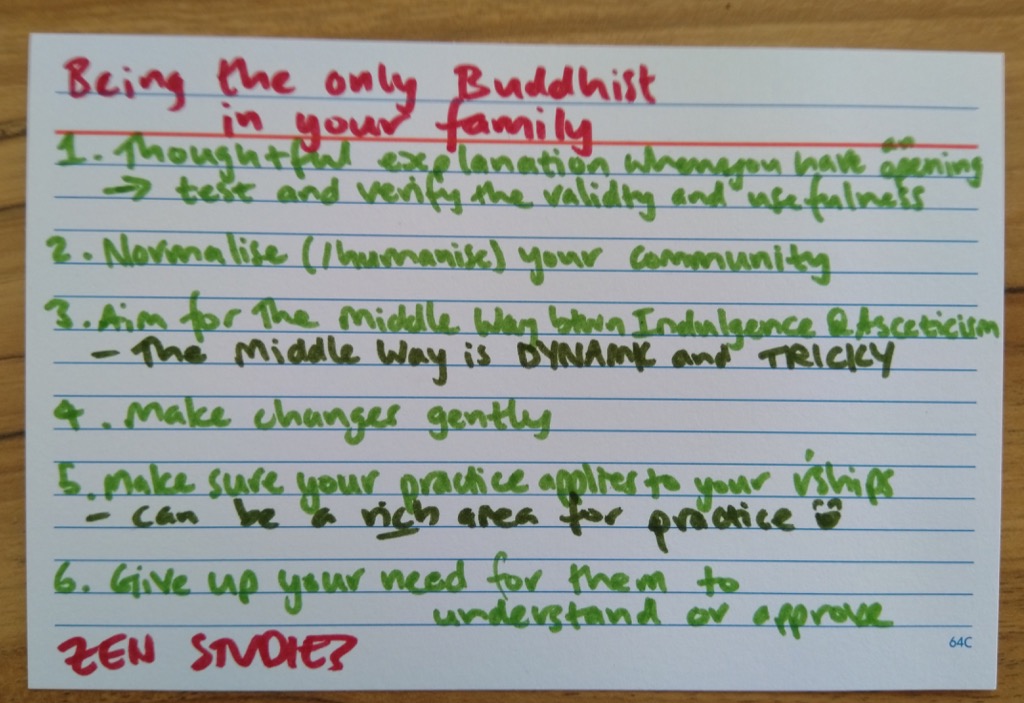 Being the only Buddhist
in your family
1. Thoughtful explanation when you have an opening
→ test and verify the validity and usefulness
2. Normalise (/humanise) your community
3. Aim for The Middle Way btwn Indulgence & Asceticism
- The Middle Way is DYNAMIC and TRICKY
4. Make changes gently
5. Make sure your practice applies to your r'ships
- can be a rich area for practice
6. Give up your need for them to
understand or approve
ZEN STUDIES
64C